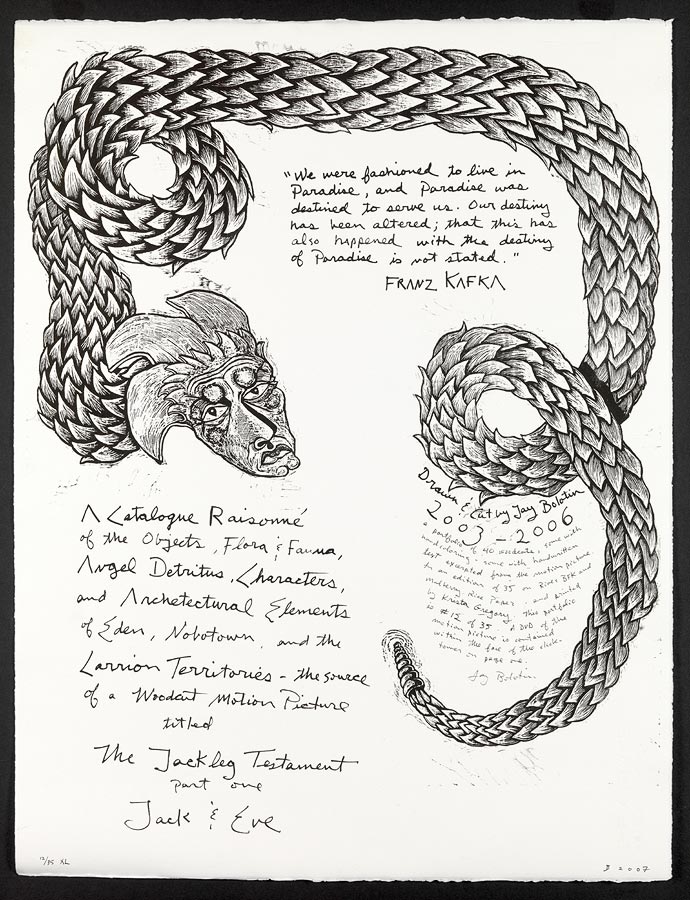 "We were fashioned to live in
Paradise, and Paradise was
destined to serve us. Our destiny
has been altered; that this has
also happened with the destiny
of Paradise is not stated."
FRANZ KAFKA
A Catalogue Raisonné
of the Objects, Flora & Fauna,
Angel Detritus, Characters,
and Archetectural Elements
of Eden, Nobotown, and the
Larrion Territories - the source
of a Woodcut Motion Picture
titled
The Jackleg Testament
part one
Jack & Eve
Drawn & Cut by Jay Bolotin
2003 - 2006
a portfolio of 40 woodcuts, some with
hand coloring - some with handwritten
text excerpted from the motion picture.
In an edition of 35 on Rives BFK and
Mulberry Rice Paper - and printed
by Kristin Gregory. This portfolio
is #12 of 35. A DVD of the
motion picture is contained
within the face of the clock-
tower on page one.
Jay Bolotin
12/35 XL
2007